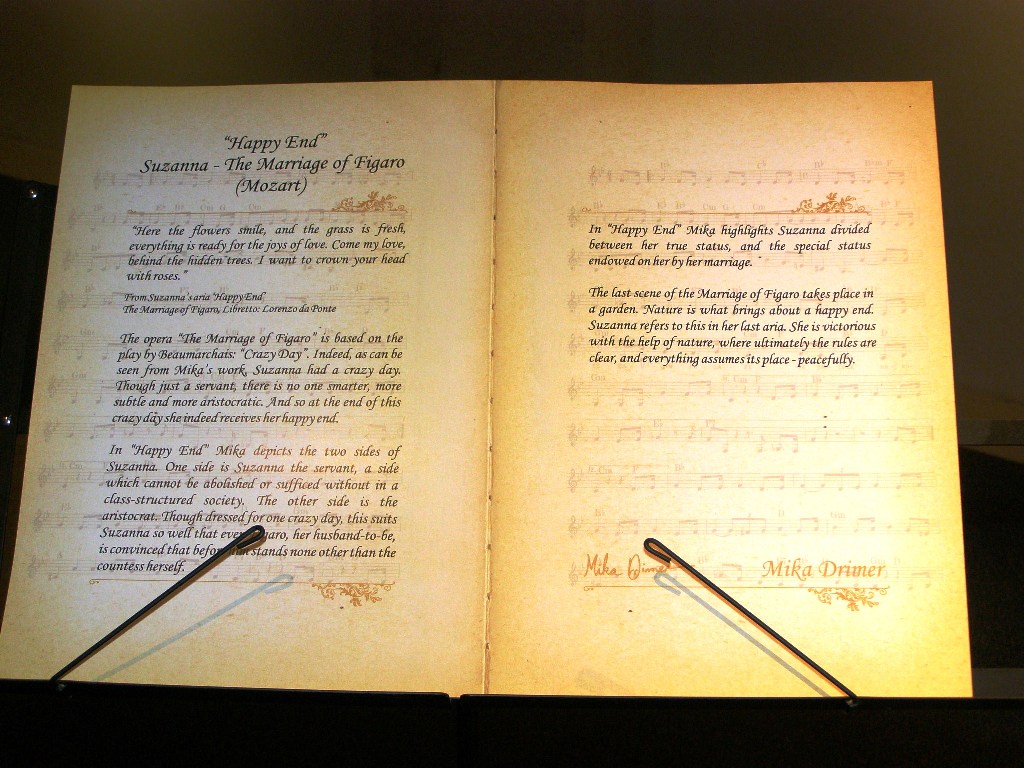 "Happy End"
Suzanna - The Marriage of Figaro
(Mozart)
"Here the flowers smile, and the grass is fresh,
everything is ready for the joys of love. Come my love,
behind the hidden trees. I want to crown your head
with roses."
From Suzanna's aria "Happy End"
The Marriage of Figaro, Libretto: Lorenzo da Ponte
The opera "The Marriage of Figaro" is based on the
play by Beaumarchais: "Crazy Day". Indeed, as can be
seen from Mika's work, Suzanna had a crazy day.
Though just a servant, there is no one smarter, more
subtle and more aristocratic. And so at the end of this
crazy day she indeed receives her happy end.
In "Happy End" Mika depicts the two sides of
Suzanna. One side is Suzanna the servant, a side
which cannot be abolished or sufficed without in a
class-structured society. The other side is the
aristocrat. Though dressed for one crazy day, this suits
Suzanna so well that even Figaro, her husband-to-be,
is convinced that before stands none other than the
countess herself.
In "Happy End" Mika highlights Suzanna divided
between her true status, and the special status
endowed on her by her marriage.
The last scene of the Marriage of Figaro takes place in
a garden. Nature is what brings about a happy end.
Suzanna refers to this in her last aria. She is victorious
with the help of nature, where ultimately the rules are
clear, and everything assumes its place - peacefully.
Mika Drimer
Mika Drimer